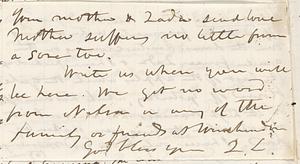 Your mother & Zada send love
Mother suffers no little from
a sore toe.
Write us when you will
be here. We get no word
from Nelson or any of the
family or friends at
God bless you